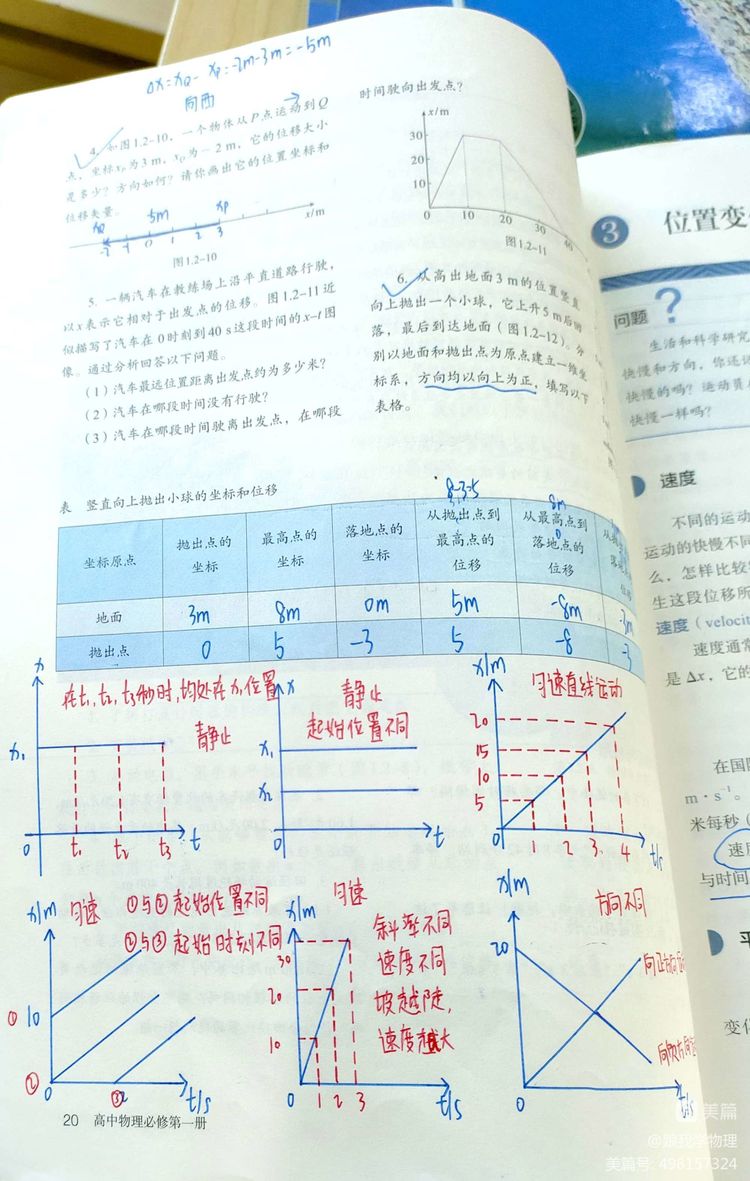 Δx=xQ-xP=-2m-3m=-5m
向西
4. 如图1.2-10，一个物体从P点运动到Q
点，坐标xP为3 m，xQ为－2 m，它的位移大小
是多少？方向如何？请你画出它的位置坐标和
位移矢量。
xQ 5m xP
-2 -1 0 1 2 3 x/m
图1.2-10
5. 一辆汽车在教练场上沿平直道路行驶，
以x表示它相对于出发点的位移。图1.2-11近
似描写了汽车在0时刻到40 s这段时间的x-t图
像。通过分析回答以下问题。
（1）汽车最远位置距离出发点约为多少米？
（2）汽车在哪段时间没有行驶？
（3）汽车在哪段时间驶离出发点，在哪段
时间驶向出发点？
x/m
30
20
10
0 10 20 30 40
图1.2-11
6. 从高出地面3 m的位置竖直
向上抛出一个小球，它上升5 m后回
落，最后到达地面（图1.2-12）。分
别以地面和抛出点为原点建立一维坐
标系，方向均以向上为正，填写以下
表格。
表 竖直向上抛出小球的坐标和位移
8-3=5
8m
0
坐标原点
抛出点的
坐标
最高点的
坐标
落地点的
坐标
从抛出点到
最高点的
位移
从最高点到
落地点的
位移
位移
地面 3m 8m 0m 5m -8m -3m
抛出点 0 5 -3 5 -8 -3
x
在t1,t2,t3秒时,均处在x1位置
静止
x1
0 t1 t2 t3 t
x
静止
起始位置不同
x1
x2
0 t
x/m
匀速直线运动
20
15
10
5
0 1 2 3 4 t/s
x/m 匀速
①与②起始位置不同
②与③起始时刻不同
① 10
② 0 ③ 2 t/s
x/m 匀速
30
20
10
0 1 2 3 t/s
斜率不同
速度不同
坡越陡,
速度越大
x/m
方向不同
20
向正方向
0 t/s
20 高中物理必修第一册
3 位置变
问题 ?
生活和科学研究
快慢和方向，你还
快慢的吗？运动员
快慢一样吗？
速度
不同的运动
运动的快慢不同
么，怎样比较
生这段位移所
速度（velocit
速度通常
是Δx，它的
在国际
m·s⁻¹。
米每秒（
速度
与时间
平
变化
美篇
@跟我学物理
美篇号: 498157324